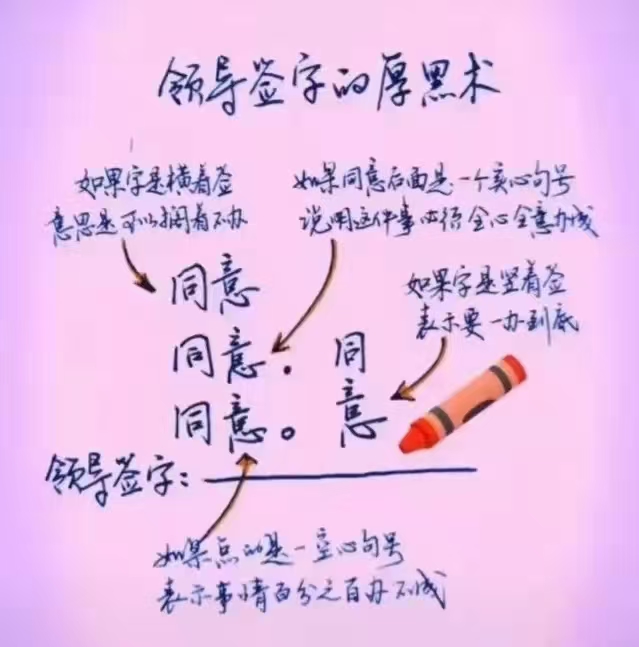 领导签字的厚黑术
如果字是横着签
意思是可以搁着不办
如果同意后面是一个实心句号
说明这件事必须全心全意办成
如果字是竖着签
表示要一办到底
同意
同意.
同意。
同
意
领导签字:
如果点的是一空心句号
表示事情百分之百办不成